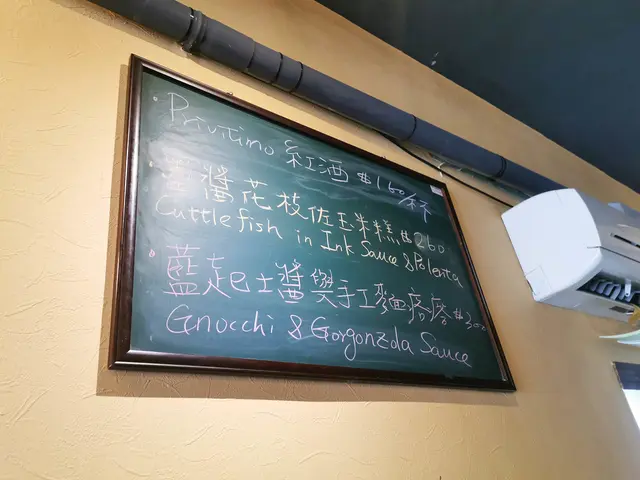 Privitimo 紅酒 $160/杯
墨醬花枝佐玉米糕 $260
Cuttlefish in Ink Sauce & Polenta
藍起士醬與手工麵疙瘩 $300
Gnocchi & Gorgonzola Sauce